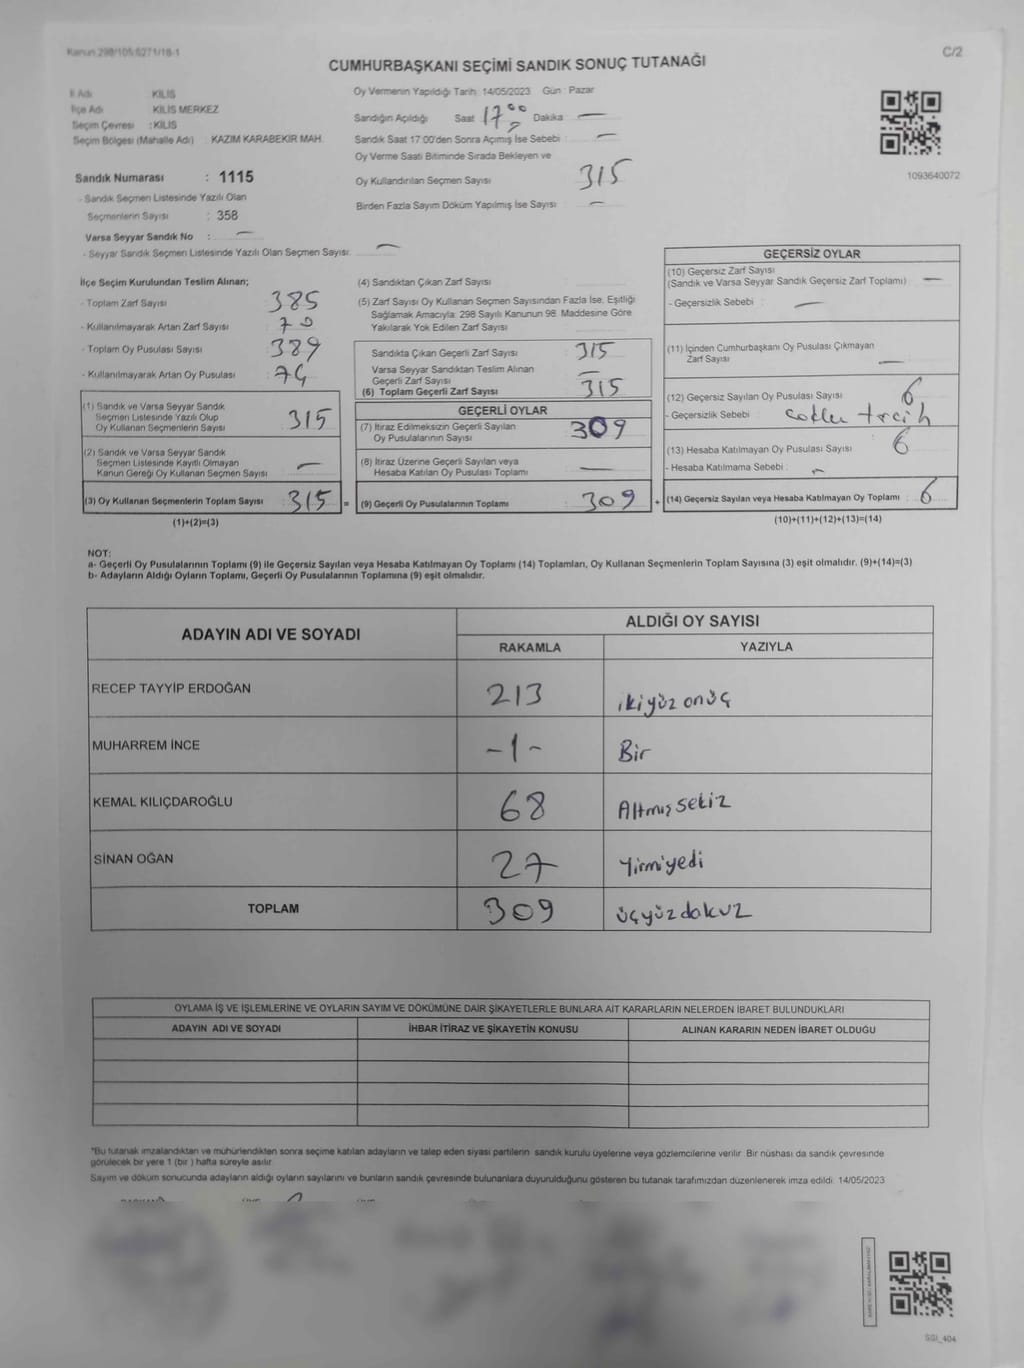 Kanun 298/105,6271/18-1
C/2
CUMHURBAŞKANI SEÇİMİ SANDIK SONUÇ TUTANAĞI
İl Adı : KİLİS
İlçe Adı : KİLİS MERKEZ
Seçim Çevresi : KİLİS
Seçim Bölgesi (Mahalle Adı) : KAZIM KARABEKİR MAH.
Sandık Numarası : 1115
- Sandık Seçmen Listesinde Yazılı Olan
Seçmenlerin Sayısı : 358
Varsa Seyyar Sandık No : —
- Seyyar Sandık Seçmen Listesinde Yazılı Olan Seçmen Sayısı: —
Oy Vermenin Yapıldığı Tarih: 14/05/2023 Gün : Pazar
Sandığın Açıldığı Saat 17.00 Dakika —
Sandık Saat 17.00'den Sonra Açılmış İse Sebebi : —
Oy Verme Saati Bitiminde Sırada Bekleyen ve
Oy Kullandırılan Seçmen Sayısı 315
Birden Fazla Sayım Döküm Yapılmış İse Sayısı : —
1093640072
İlçe Seçim Kurulundan Teslim Alınan;
- Toplam Zarf Sayısı : 385
- Kullanılmayarak Artan Zarf Sayısı : 70
- Toplam Oy Pusulası Sayısı : 389
- Kullanılmayarak Artan Oy Pusulası : 74
(1) Sandık ve Varsa Seyyar Sandık
Seçmen Listesinde Yazılı Olup
Oy Kullanan Seçmenlerin Sayısı : 315
(2) Sandık ve Varsa Seyyar Sandık
Seçmen Listesinde Kayıtlı Olmayan
Kanun Gereği Oy Kullanan Seçmen Sayısı : —
(3) Oy Kullanan Seçmenlerin Toplam Sayısı : 315 =
(1)+(2)=(3)
(4) Sandıktan Çıkan Zarf Sayısı :
(5) Zarf Sayısı Oy Kullanan Seçmen Sayısından Fazla İse, Eşitliği
Sağlamak Amacıyla; 298 Sayılı Kanunun 98. Maddesine Göre
Yakılarak Yok Edilen Zarf Sayısı :
Sandıkta Çıkan Geçerli Zarf Sayısı : 315
Varsa Seyyar Sandıktan Teslim Alınan
Geçerli Zarf Sayısı : —
(6) Toplam Geçerli Zarf Sayısı : 315
GEÇERLİ OYLAR
(7) İtiraz Edilmeksizin Geçerli Sayılan
Oy Pusulalarının Sayısı : 309
(8) İtiraz Üzerine Geçerli Sayılan veya
Hesaba Katılan Oy Pusulası Toplamı : —
(9) Geçerli Oy Pusulalarının Toplamı : 309 +
GEÇERSİZ OYLAR
(10) Geçersiz Zarf Sayısı
(Sandık ve Varsa Seyyar Sandık Geçersiz Zarf Toplamı) : —
- Geçersizlik Sebebi : —
(11) İçinden Cumhurbaşkanı Oy Pusulası Çıkmayan
Zarf Sayısı : —
(12) Geçersiz Sayılan Oy Pusulası Sayısı : 6
- Geçersizlik Sebebi : çoklu tercih
(13) Hesaba Katılmayan Oy Pusulası Sayısı : 6
- Hesaba Katılmama Sebebi : —
(14) Geçersiz Sayılan veya Hesaba Katılmayan Oy Toplamı : 6
(10)+(11)+(12)+(13)=(14)
NOT:
a- Geçerli Oy Pusulalarının Toplamı (9) ile Geçersiz Sayılan veya Hesaba Katılmayan Oy Toplamı (14) Toplamları, Oy Kullanan Seçmenlerin Toplam Sayısına (3) eşit olmalıdır. (9)+(14)=(3)
b- Adayların Aldığı Oyların Toplamı, Geçerli Oy Pusulalarının Toplamına (9) eşit olmalıdır.
ADAYIN ADI VE SOYADI
ALDIĞI OY SAYISI
RAKAMLA YAZIYLA
RECEP TAYYİP ERDOĞAN 213 ikiyüz onüç
MUHARREM İNCE -1- Bir
KEMAL KILIÇDAROĞLU 68 Altmış sekiz
SİNAN OĞAN 27 Yirmiyedi
TOPLAM 309 üçyüz dokuz
OYLAMA İŞ VE İŞLEMLERİNE VE OYLARIN SAYIM VE DÖKÜMÜNE DAİR ŞİKAYETLERLE BUNLARA AİT KARARLARIN NELERDEN İBARET BULUNDUKLARI
ADAYIN ADI VE SOYADI İHBAR İTİRAZ VE ŞİKAYETİN KONUSU ALINAN KARARIN NEDEN İBARET OLDUĞU
*Bu tutanak imzalandıktan ve mühürlendikten sonra seçime katılan adayların ve talep eden siyasi partilerin sandık kurulu üyelerine veya gözlemcilerine verilir. Bir nüshası da sandık çevresinde
görülecek bir yere 1 (bir ) hafta süreyle asılır.
Sayım ve döküm sonucunda adayların aldığı oyların sayılarını ve bunların sandık çevresinde bulunanlara duyurulduğunu gösteren bu tutanak tarafımızdan düzenlenerek imza edildi. 14/05/2023
SGI_404